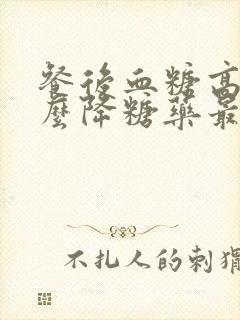 餐後血糖高
麼降糖藥最
不扎人的刺猬